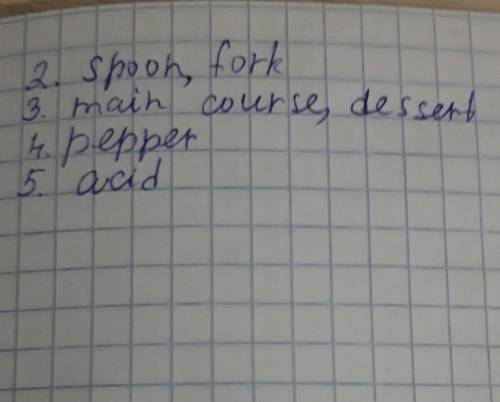 2. spoon, fork
3. main course, dessert
4. pepper
5. acid